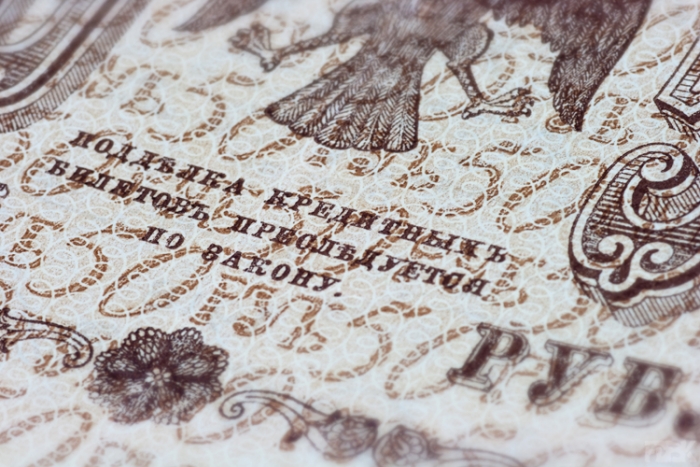 ПОДДѢЛКА КРЕДИТНЫХЪ
БИЛЕТОВЪ ПРЕСЛѢДУЕТСЯ
ПО ЗАКОНУ.
РУБ.